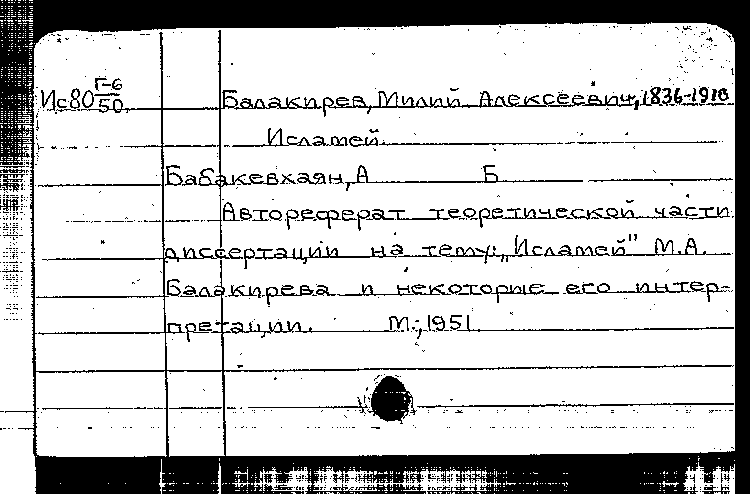 Ис80 Г-6/50. Балакирев, Милий Алексеевич, 1836-1910
Исламей.
Бабакевхаян, А Б
Автореферат теоретической части
диссертации на тему: „Исламей" М.А.
Балакирева и некоторые его интер-
претации. М., 1951.